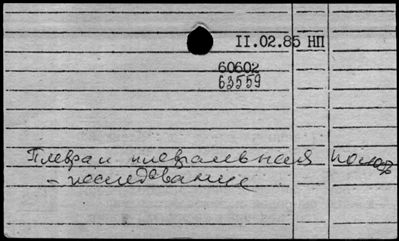 II.02.85 НП
60602
63559
Плевра и плевральная полость
- исследование